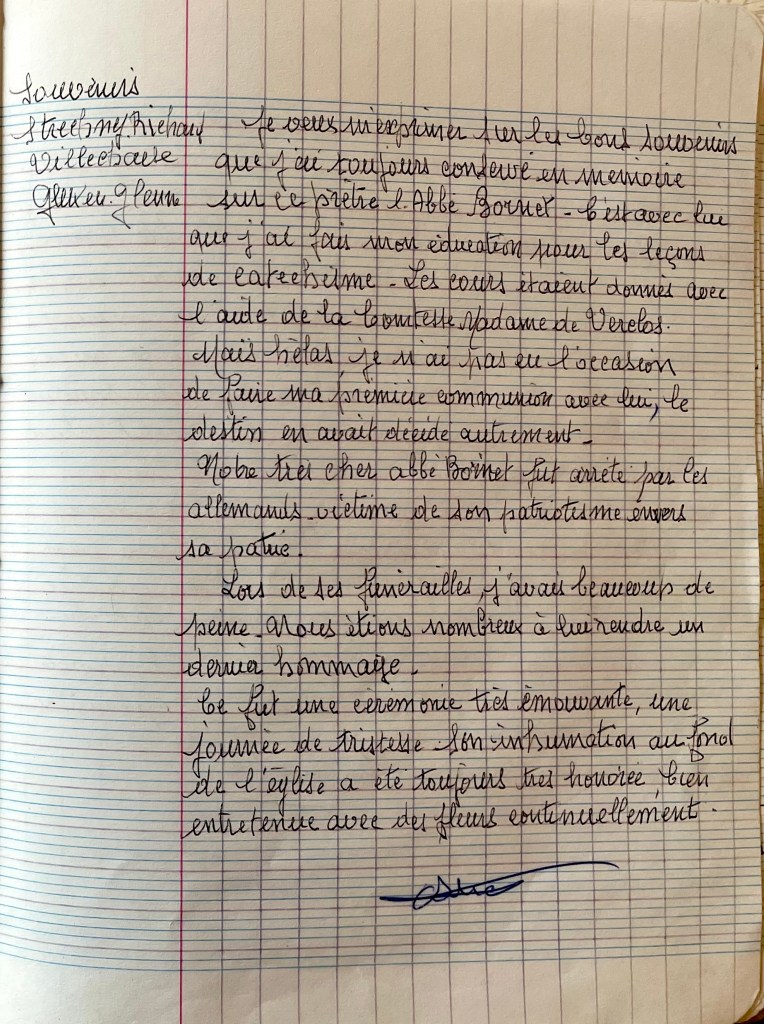 Souvenirs
Je veux m'exprimer sur les bons souvenirs
Villechaise que j'ai toujours conservé en memoire
Glux en Glenne sur ce prêtre l'Abbé Bornet - C'est avec lui
que j'ai fais mon éducation pour les leçons
de catechisme - Les cours étaient donnés avec
l'aide de la Comtesse Madame de
Mais hélas, je n'ai pas eu l'occasion
de faire ma premiére communion avec lui, le
destin en avait décidé autrement -
Notre très cher abbé Bornet fut arrêté par les
allemands victime de son patriotisme envers
sa patrie.
Lors de ses funérailles, j'avais beaucoup de
peine. Nous étions nombreux à lui rendre un
dernier hommage.
Ce fut une cérémonie très émouvante, une
journée de tristesse son inhumation au fond
de l'église a été toujours très honorée, bien
entretenue avec des fleurs continuellement.